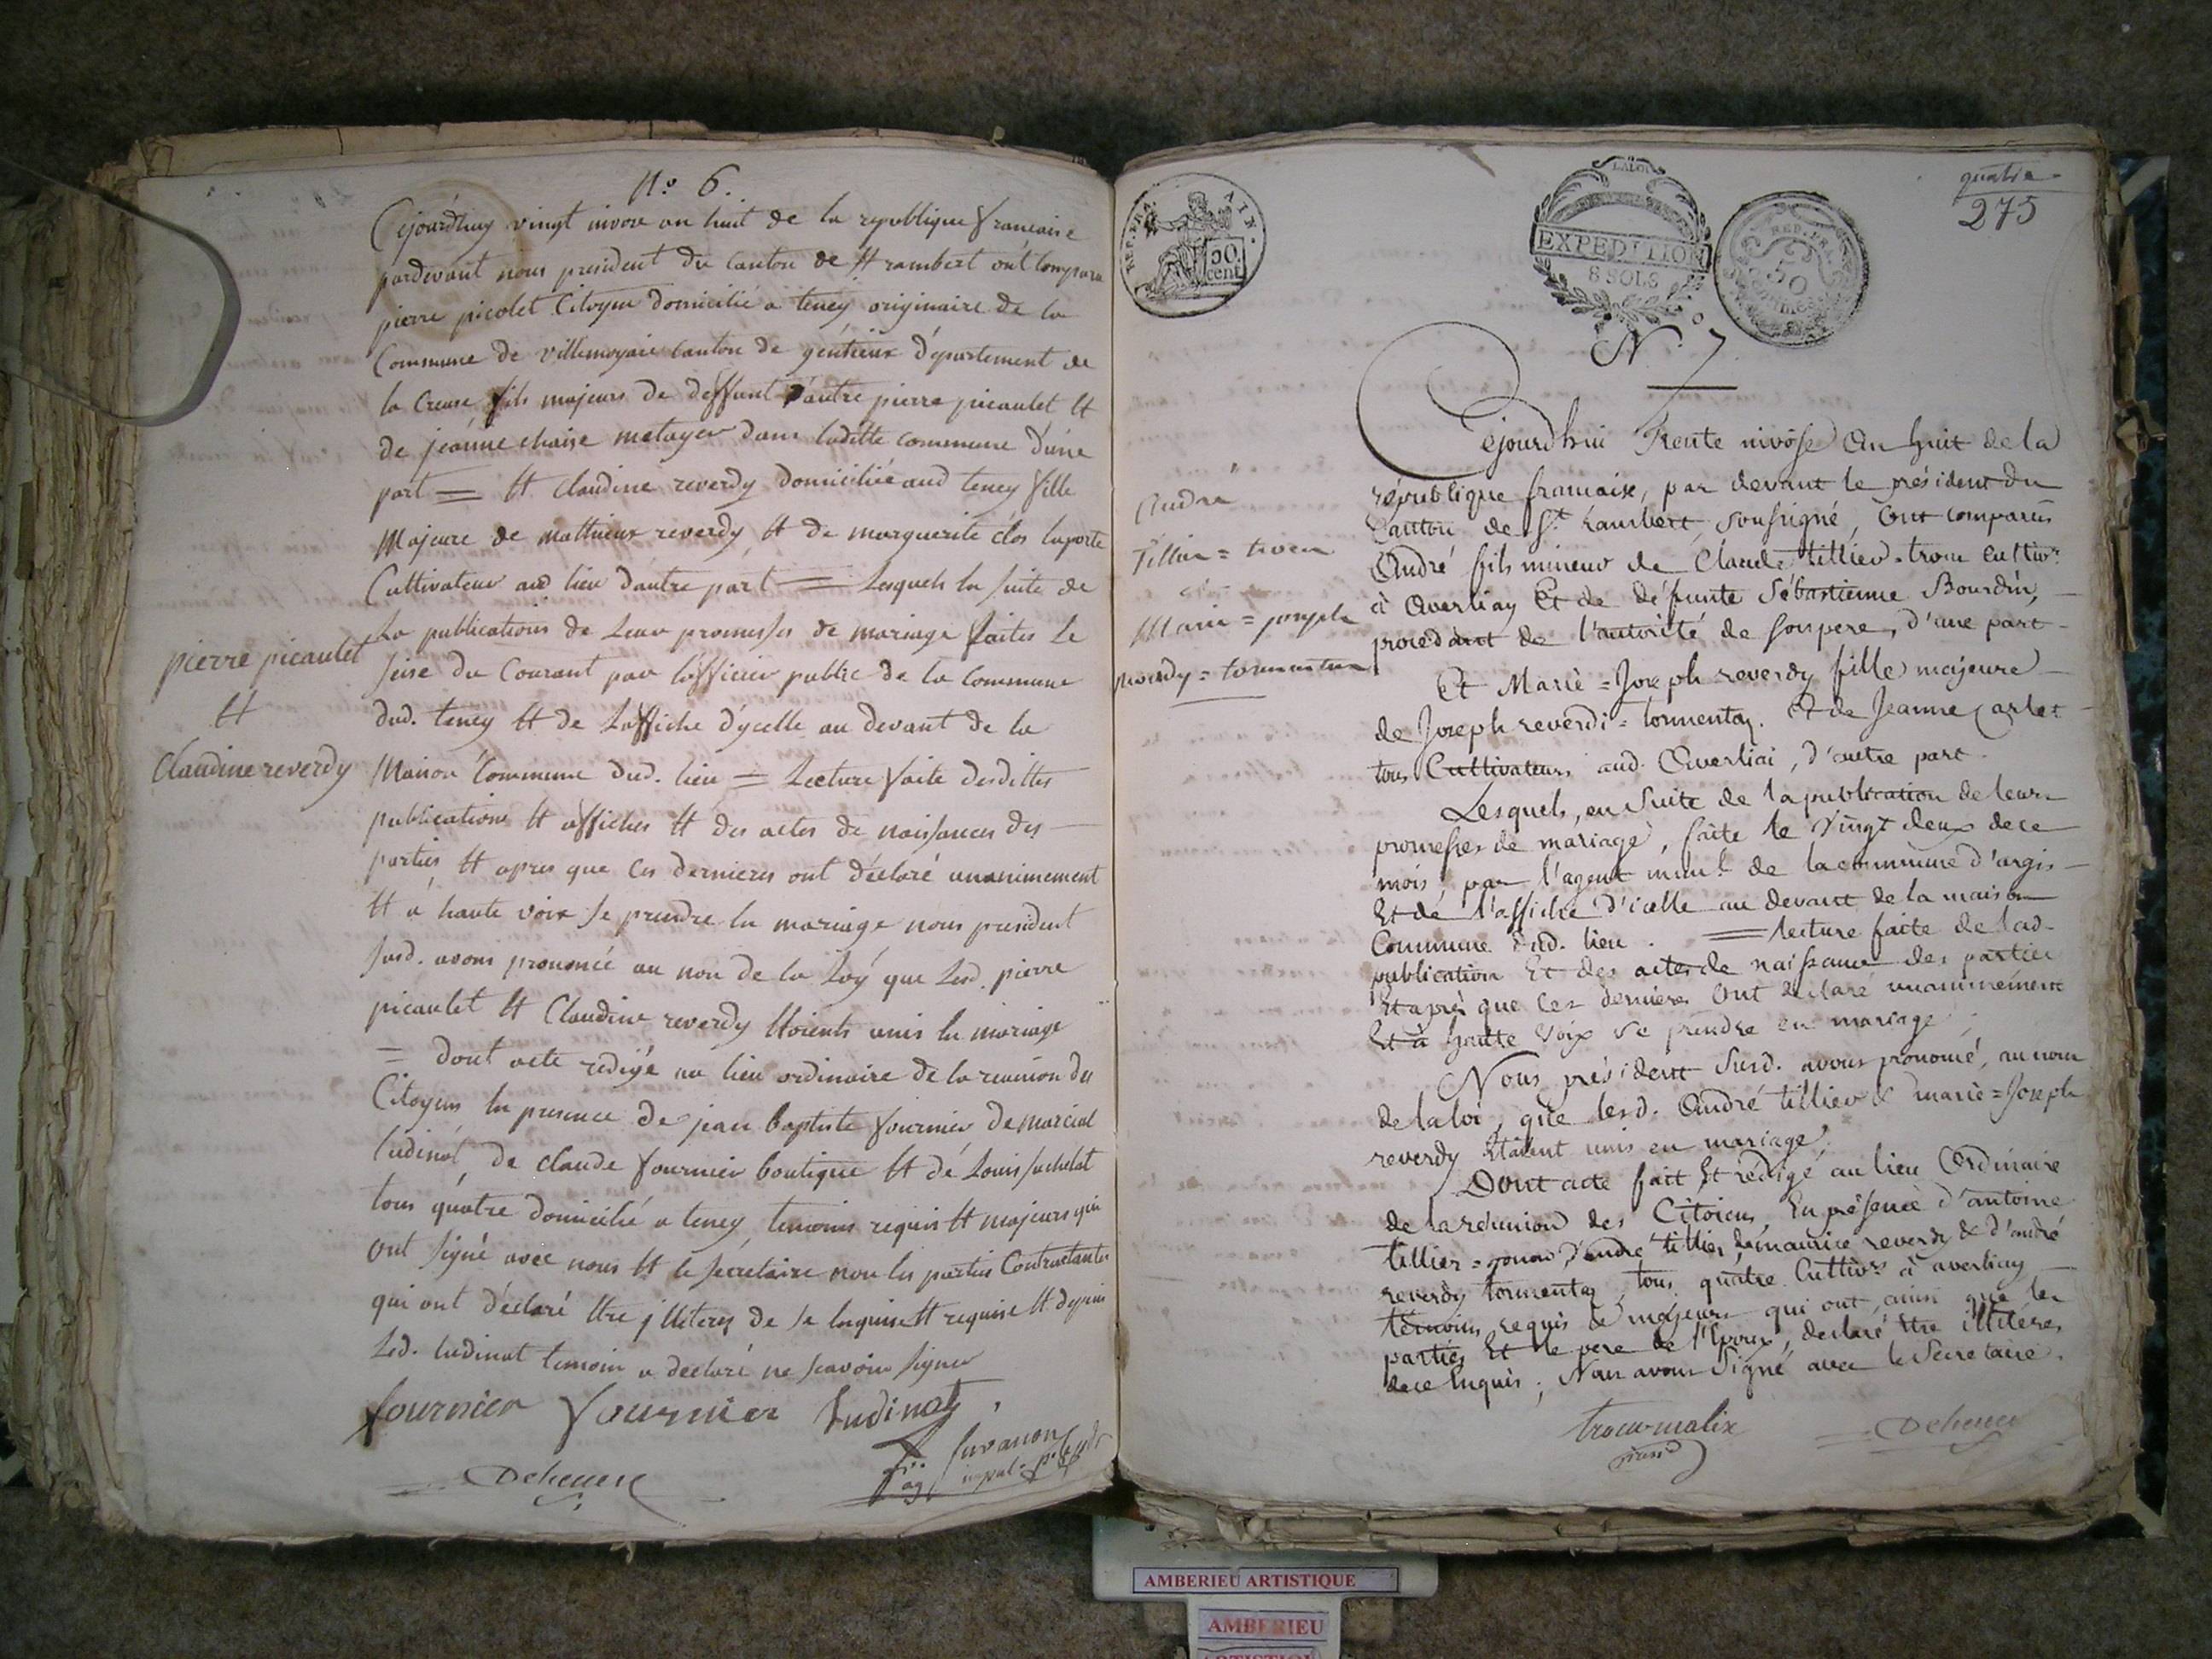 N.º 6.
Cejourdhuy vingt nivose an huit de la republique francaise
pardevant nous president du canton de St rambert ont comparu
pierre picolet Citoyen domicilié a teney originaire de la
Commune de villemoyaie canton de gentieux département de
la Creuse fils majeurs de deffunt d'autre pierre picaulet Et
de jeanne chaise metayer dans laditte commune d'une
part = Et Claudine reverdy domiciliée aud teney fille
Majeure de matthieux reverdy Et de marguerite clos laporte
Cultivateur aud lieu dautre part = Lesquels En suite de
La publications de Leur promesses de mariage faites le
seise du Courant par lofficier public de la Commune
dud. teney Et de Laffiche d'ycelle au devant de la
Maison Commune dud. lieu = Lecture faite desdittes
publications Et affiches Et des actes de naissances des
parties Et apres que Ces dernieres ont déclaré unanimement
Et a haute voix se prendre En mariage nous president
susd. avons prononcé au non de la Loy que Lesd. pierre
picaulet Et Claudine reverdy Etoients unis En mariage
= dont acte redigé au lieu ordinaire de la reunion des
Citoyens En presence de jean baptiste fournier de marcial
ludinat de claude fournier boutique Et de Louis juchelat
tous quatre domicilié a teney temoins requis Et majeurs qui
ont signé avec nous Et le secretaire non les parties Contractantes
qui ont déclaré Etre jlleteres de ce Enquise Et requise Et depuis
Led. ludinat temoin a déclaré ne scavoir signer
pierre picaulet
Et
Claudine reverdy
fournier fournier Ludinat
juvanon
Deheuer
quatre
275
REP. FRA. AIN.
50 cent
LA LOI
EXPEDITION
8 SOLS
REP. FRA.
50
Centimes
N.º 7
Cejourdhui Trente nivôse An huit de la
république francaise, par devant le président du
Canton de St. Rambert, soussigné, Ont comparus
André fils mineur de Claude tillier-trocu cultivr.
à Averliay Et de défunte Sébastienne Bourdin,
procédant de l'autorité de son pere, d'une part
Et Marie=Joseph reverdy fille majeure
de Joseph reverdi=tormentaz. Et de Jeanne Carlet
tous Cultivateurs aud. Averliai, d'autre part.
Lesquels, en suite de la publication de leurs
promesses de mariage, faite le vingt deux de ce
mois, par l'agent munl. de la commune d'argis
Et de l'affiche d'icelle au devant de la maison
Commune dud. lieu. = lecture faite de lad.
publication Et des actes de naissance des parties
Et après que Ces dernieres Ont déclaré unanimément
Et à haute voix se prendre en mariage,
Nous président susd. avons prononcé, au nom
de la loi, que lesd. André tillier & marie=Joseph
reverdy Etaient unis en mariage.
Dont acte fait Et rédigé au lieu Ordinaire
de la réunion des Citoiens, En présence d'antoine
tillier=gonon, d'andré tillier, de maurice reverdy & d'andré
reverdy tormentaz, tous quatre Cultivrs. à averliay
témoins requis & majeurs qui ont, ainsi que les
parties Et le pere de l'Epoux, declaré Etre illitéres
de ce Enquis; Nous avons Signé avec le Secrétaire.
André
Tillier = trocu
Et
Marie = joseph
reverdy = tormentaz
trocu-malix
presid
Deheuer
AMBERIEU ARTISTIQUE
AMBERIEU
ARTISTIQUE